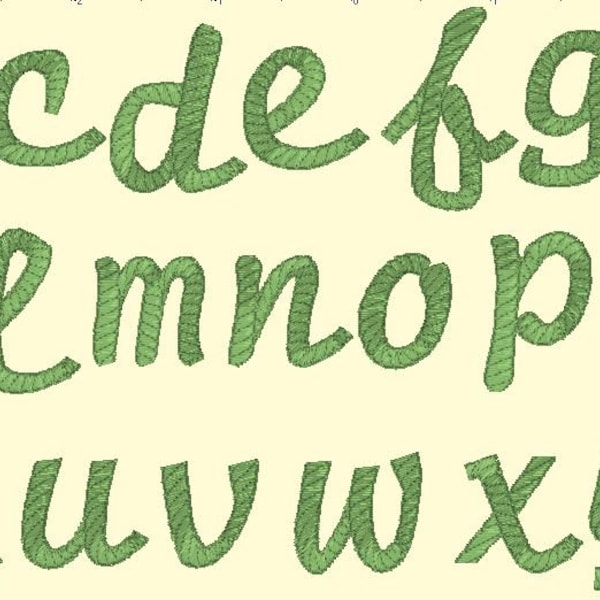 c d e f g
l m n o p
u v w x